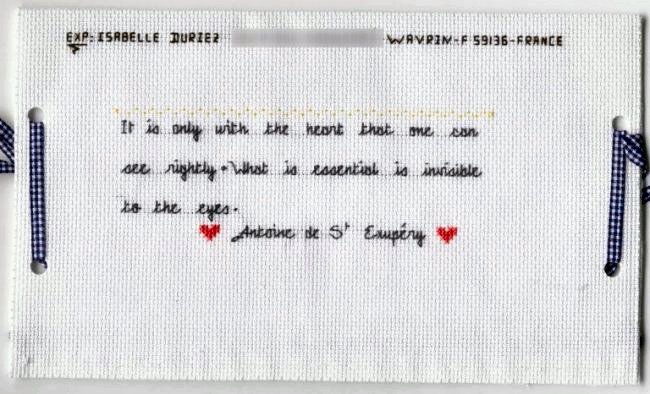 EXP: ISABELLE DURIEZ WAVRIN-F 59136-FRANCE
It is only with the heart that one can
see rightly. What is essential is invisible
to the eyes.
Antoine de St Exupéry